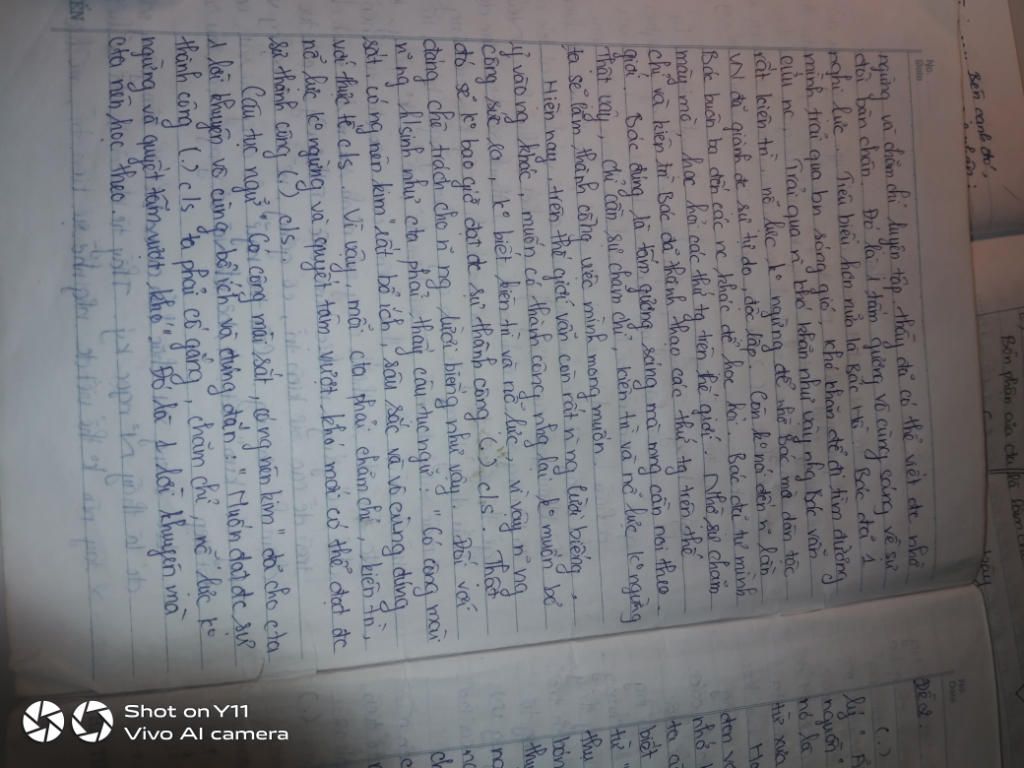 ngừng và chăm chỉ luyện tập, thầy đã có thể viết đc nhờ
đôi bàn chân. Đó là 1 tấm gương vô cùng sáng về sự
nghị lực. Tiêu biểu hơn nữa là Bác Hồ. Bác đã 1
mình trải qua bn sóng gió, khó khăn để đi tìm đường
cứu nc. Trải qua n~ khó khăn như vậy nhg Bác vẫn
rất kiên trì, nỗ lực k° ngừng để nhờ Bác mà dân tộc
VN đã giành đc sự tự do, độc lập. Còn k° nói đến n~ lần
Bác buôn ba đến các nc khác để học hỏi. Bác đã tự mình
mày mò, học hỏi các thứ tg trên thế giới. Nhờ sự chăm
chỉ và kiên trì Bác đã thành thạo các thứ tg trên thế
giới. Bác đúng là tấm gương sáng mà mng cần noi theo.
Thật vậy, chỉ cần sự chăm chỉ, kiên trì và nỗ lực k° ngừng
ta sẽ làm thành công việc mình mong muốn.
Hiện nay, trên thế giới vẫn còn rất n~ ng lười biếng,
ỷ vào ng khác, muốn có thành công nhg lại k° muốn bỏ
công sức ra, k° biết kiên trì và nỗ lực, vì vậy n~ ng
đó sẽ k° bao giờ đạt đc sự thành công (.) c/s. Thật
đáng chê trách cho n~ ng lười biếng như vậy. Đối với
n~ ng h/sinh như cta, phải thấy câu tục ngữ: "Có công mài
sắt, có ng nên kim" rất bổ ích, sâu sắc và vô cùng đúng
với thực tế c/s. Vì vậy, mỗi cta phải chăm chỉ, kiên trì,
nỗ lực k° ngừng và quyết tâm vượt khó mới có thể đạt đc
sự thành công (.) c/s.
Câu tục ngữ "Có công mài sắt, có ng nên kim" đã cho cta
1 lời khuyên vô cùng bổ ích và đúng đắn "Muốn đạt đc sự
thành công (.) c/s ta phải cố gắng, chăm chỉ, nỗ lực k°
ngừng và quyết tâm vượt khó". Đó là 1 lời khuyên mà
cta nên học theo.
Bên cạnh đó,
Bổn phận của
Đề 2: